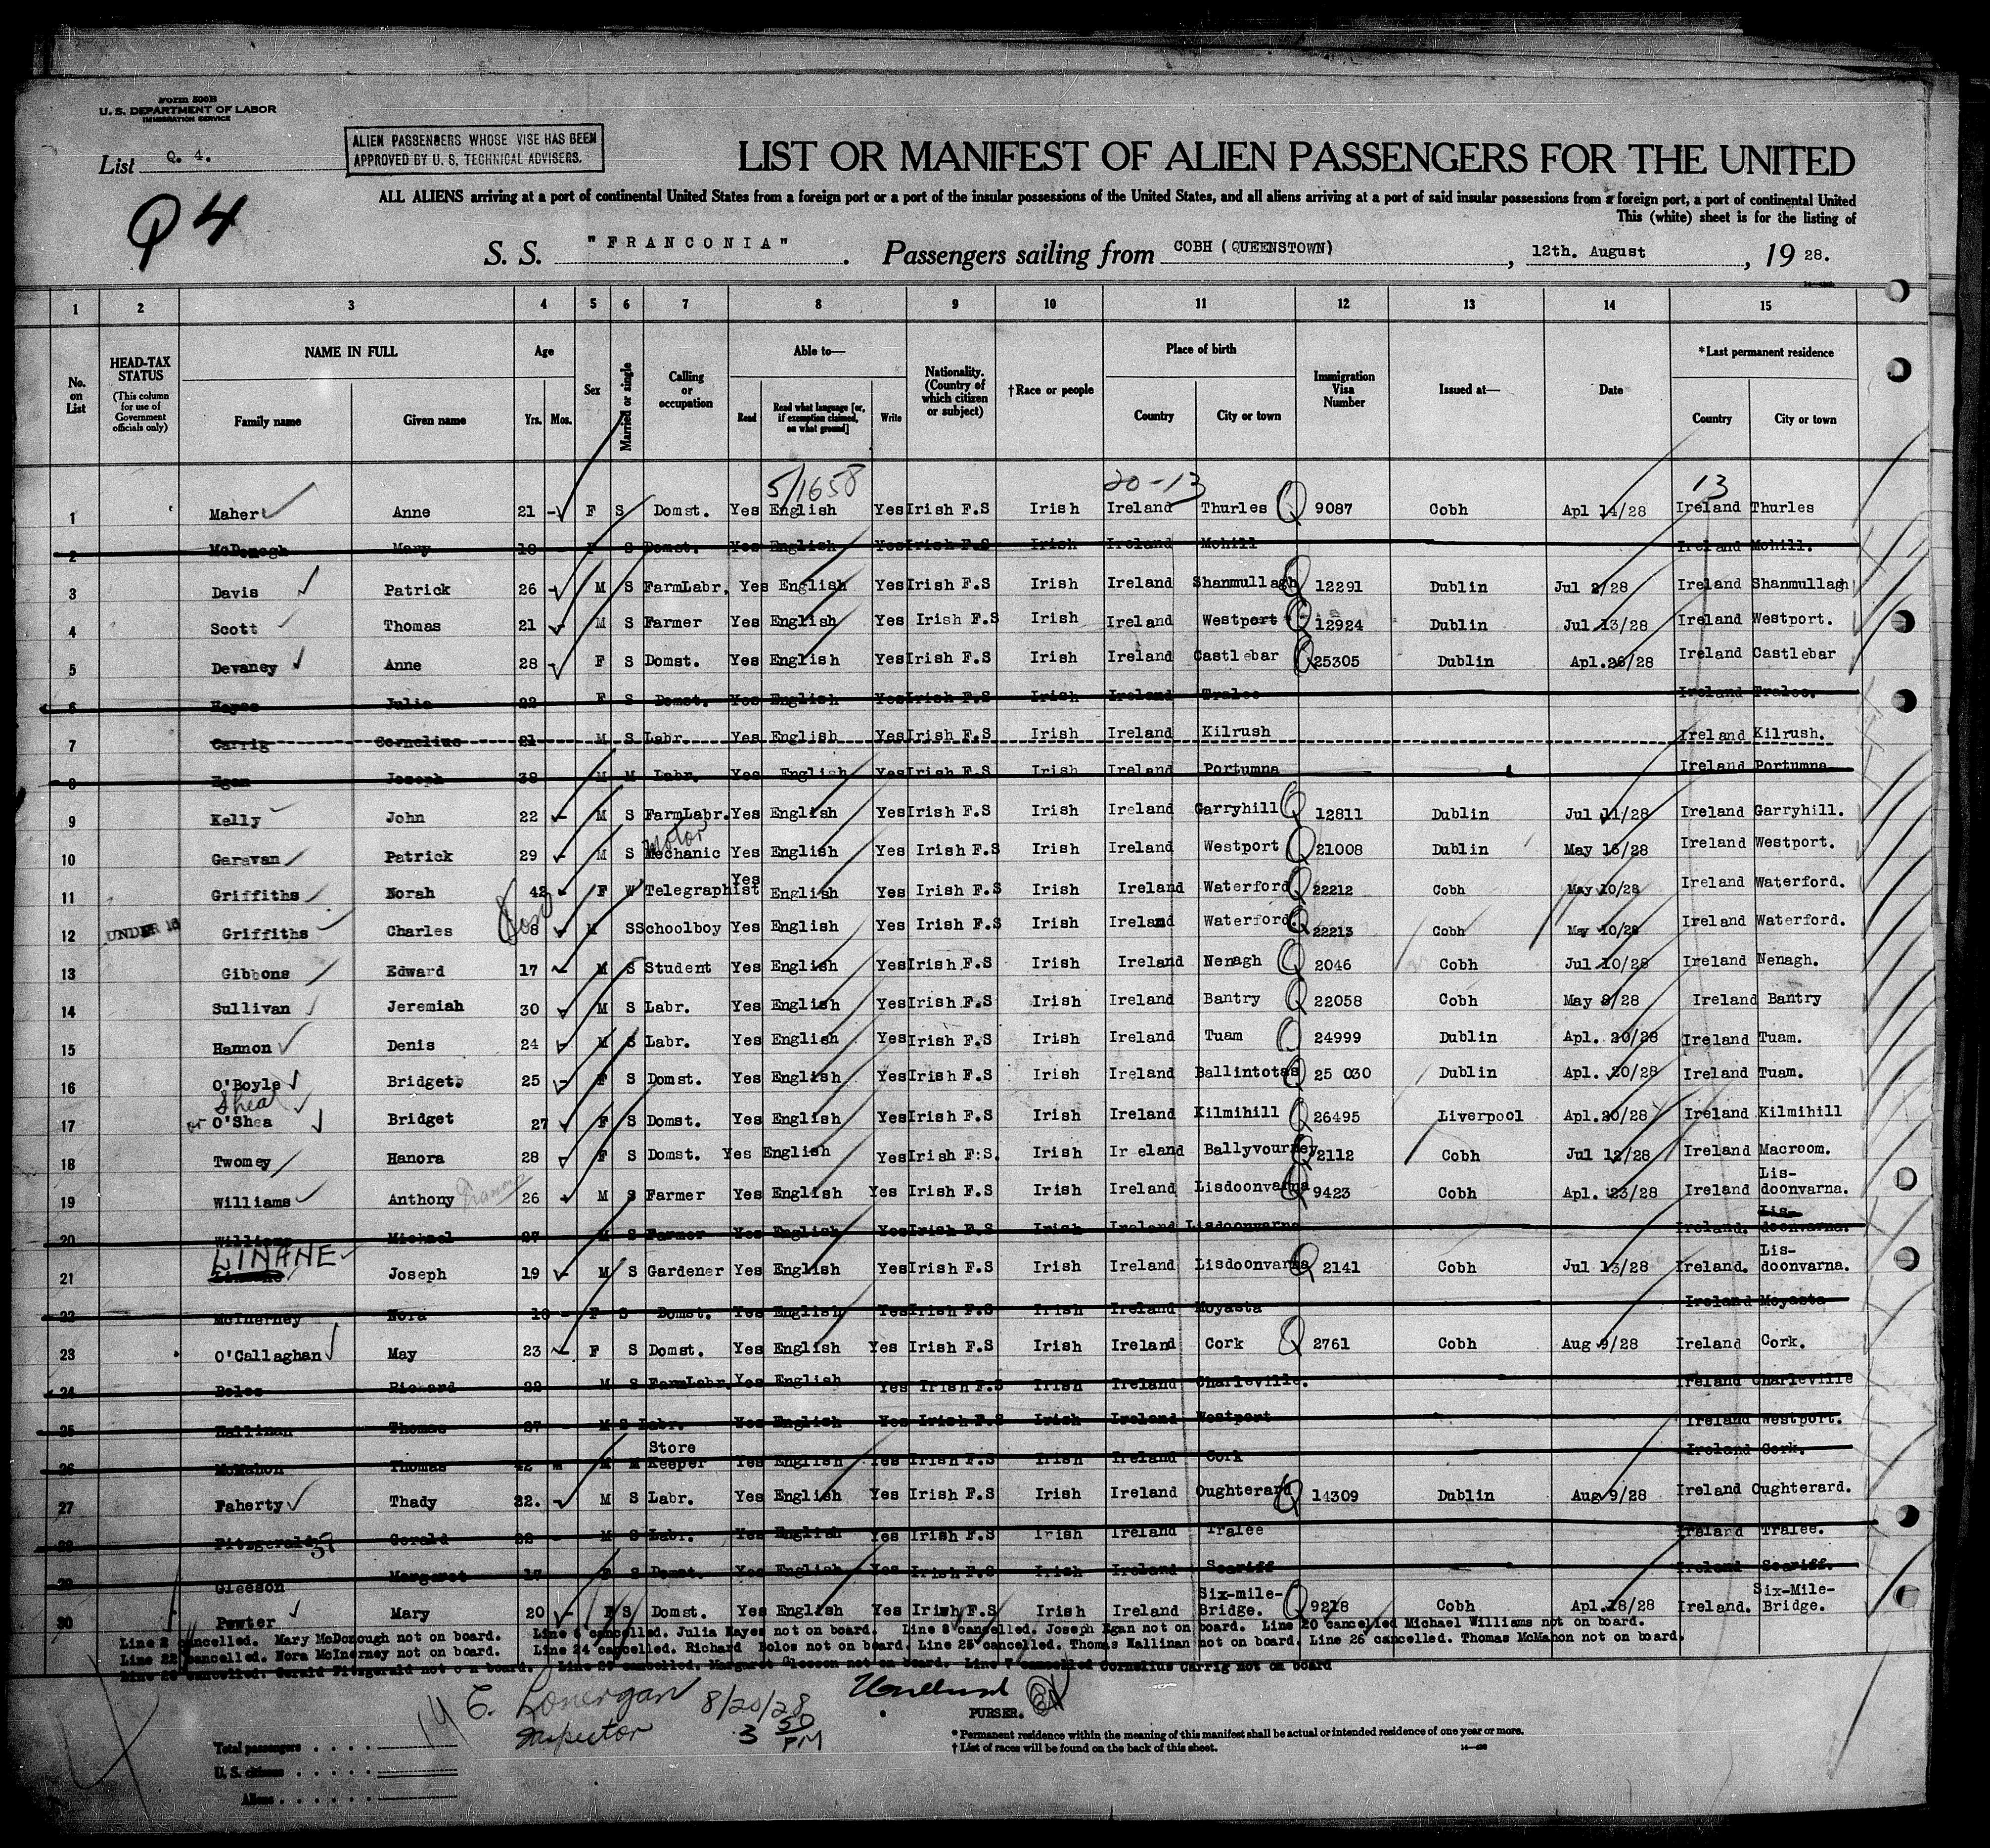 Form 500B
U. S. DEPARTMENT OF LABOR
IMMIGRATION SERVICE
ALIEN PASSENGERS WHOSE VISE HAS BEEN
APPROVED BY U. S. TECHNICAL ADVISERS.
List Q. 4.
Q4
LIST OR MANIFEST OF ALIEN PASSENGERS FOR THE UNITED
ALL ALIENS arriving at a port of continental United States from a foreign port or a port of the insular possessions of the United States, and all aliens arriving at a port of said insular possessions from a foreign port, a port of continental United
This (white) sheet is for the listing of
S. S. "FRANCONIA" . Passengers sailing from COBH (QUEENSTOWN) , 12th. August , 19 28.
1 2 3 4 5 6 7 8 9 10 11 12 13 14 15
No. on List HEAD-TAX STATUS (This column for use of Government officials only) NAME IN FULL Family name Given name Age Yrs. Mos. Sex Married or single Calling or occupation Able to— Read Read what language [or, if exemption claimed, on what ground] Write Nationality. (Country of which citizen or subject) †Race or people Place of birth Country City or town Immigration Visa Number Issued at— Date *Last permanent residence Country City or town
5/1658 20-13 13
1 Maher Anne 21 - F S Domst. Yes English Yes Irish F.S Irish Ireland Thurles Q 9087 Cobh Apl 14/28 Ireland Thurles
2 McDonogh Mary 18 - F S Domst. Yes English Yes Irish F.S Irish Ireland Mohill Ireland Mohill.
3 Davis Patrick 26 - M S FarmLabr. Yes English Yes Irish F.S Irish Ireland Shanmullagh Q 12291 Dublin Jul 2/28 Ireland Shanmullagh
4 Scott Thomas 21 - M S Farmer Yes English Yes Irish F.S Irish Ireland Westport Q 12924 Dublin Jul 13/28 Ireland Westport.
5 Devaney Anne 28 - F S Domst. Yes English Yes Irish F.S Irish Ireland Castlebar Q 25305 Dublin Apl. 26/28 Ireland Castlebar
6 Hayes Julia 22 F S Domst. Yes English Yes Irish F.S Irish Ireland Tralee Ireland Tralee.
7 Carrig Cornelius 21 M S Labr. Yes English Yes Irish F.S Irish Ireland Kilrush Ireland Kilrush.
8 Egan Joseph 38 M M Labr. Yes English Yes Irish F.S Irish Ireland Portumna Ireland Portumna
9 Kelly John 22 - M S FarmLabr. Yes English Yes Irish F.S Irish Ireland Garryhill Q 12811 Dublin Jul 11/28 Ireland Garryhill.
10 Garavan Patrick 29 - M S Motor Mechanic Yes English Yes Irish F.S Irish Ireland Westport Q 21008 Dublin May 16/28 Ireland Westport.
11 Griffiths Norah 42 - F W Telegraphist Yes English Yes Irish F.S Irish Ireland Waterford Q 22212 Cobh May 10/28 Ireland Waterford.
12 UNDER 16 Griffiths Charles Son 8 - M S Schoolboy Yes English Yes Irish F.S Irish Ireland Waterford. Q 22213 Cobh May 10/28 Ireland Waterford.
13 Gibbons Edward 17 - M S Student Yes English Yes Irish F.S Irish Ireland Nenagh Q 2046 Cobh Jul 10/28 Ireland Nenagh.
14 Sullivan Jeremiah 30 - M S Labr. Yes English Yes Irish F.S Irish Ireland Bantry Q 22058 Cobh May 8/28 Ireland Bantry
15 Hannon Denis 24 - M S Labr. Yes English Yes Irish F.S Irish Ireland Tuam Q 24999 Dublin Apl. 20/28 Ireland Tuam.
16 O'Boyle Bridget 25 - F S Domst. Yes English Yes Irish F.S Irish Ireland Ballintotas Q 25 030 Dublin Apl. 20/28 Ireland Tuam.
Shea
17 or O'Shea Bridget 27 F S Domst. Yes English Yes Irish F.S Irish Ireland Kilmihill Q 26495 Liverpool Apl. 20/28 Ireland Kilmihill
18 Twomey Hanora 28 - F S Domst. Yes English Yes Irish F:S. Irish Ireland Ballyvourney Q 2112 Cobh Jul 12/28 Ireland Macroom.
19 Williams Anthony 26 M S Farmer Yes English Yes Irish F.S Irish Ireland Lisdoonvarna Q 9423 Cobh Apl. 23/28 Ireland Lis-doonvarna.
20 Williams Michael 27 M S Farmer Yes English Yes Irish F.S Irish Ireland Lisdoonvarna Ireland. Lis-doonvarna.
21 LINANE Joseph 19 - M S Gardener Yes English Yes Irish F.S Irish Ireland Lisdoonvarna Q 2141 Cobh Jul 13/28 Ireland. Lis-doonvarna.
22 McInerney Nora 18 - F S Domst. Yes English Yes Irish F.S Irish Ireland Moyasta Ireland Moyasta
23 O'Callaghan May 23 - F S Domst. Yes English Yes Irish F.S Irish Ireland Cork Q 2761 Cobh Aug 9/28 Ireland Cork.
24 Bolos Richard 22 M S FarmLabr. Yes English Yes Irish F.S Irish Ireland Charleville. Ireland Charleville
25 Hallinan Thomas 27 - M S Labr. Yes English Yes Irish F.S Irish Ireland Westport Ireland Westport.
26 McMahon Thomas 42 M M Store Keeper Yes English Yes Irish F.S Irish Ireland Cork Ireland Cork.
27 Faherty Thady 22. - M S Labr. Yes English Yes Irish F.S Irish Ireland Oughterard Q 14309 Dublin Aug 9/28 Ireland Oughterard.
28 Fitzgerald Gerald 22 - M S Labr. Yes English Yes Irish F.S Irish Ireland Tralee Ireland Tralee.
29 Gleeson Margaret 17 F S Domst. Yes English Yes Irish F.S Irish Ireland Scariff Ireland Scariff.
30 Pewter Mary 20 - F S Domst. Yes English Yes Irish F.S Irish Ireland Six-mile-Bridge. Q 9218 Cobh Apl. 18/28 Ireland. Six-Mile-Bridge.
Line 2 cancelled. Mary McDonough not on board. Line 6 cancelled. Julia Hayes not on board. Line 8 cancelled. Joseph Egan not on board. Line 20 cancelled Michael Williams not on board.
Line 22 cancelled. Nora McInerney not on board. Line 24 cancelled. Richard Bolos not on board. Line 25 cancelled. Thomas Hallinan not on board. Line 26 cancelled. Thomas McMahon not on board.
Line 28 cancelled. Gerald Fitzgerald not on board. Line 29 cancelled. Margaret Gleeson not on board. Line 7 cancelled Cornelius Carrig not on board
E. Lonergan 8/20/28
Inspector 3 50 PM
PURSER.
* Permanent residence within the meaning of this manifest shall be actual or intended residence of one year or more.
† List of races will be found on the back of this sheet.
Total passengers . . . .
U. S. citizens . . . . .
Aliens . . . . . .